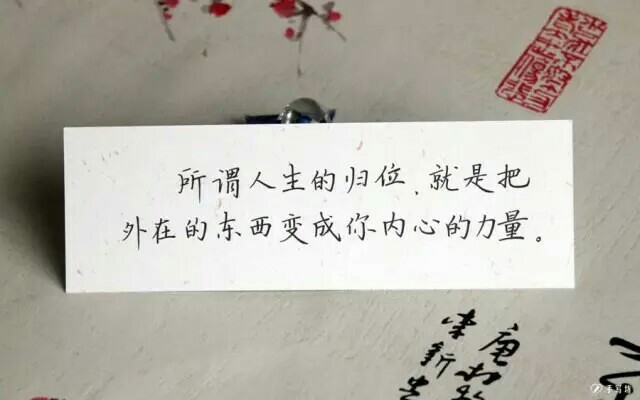 所谓人生的归位、就是把
外在的东西变成你内心的力量。